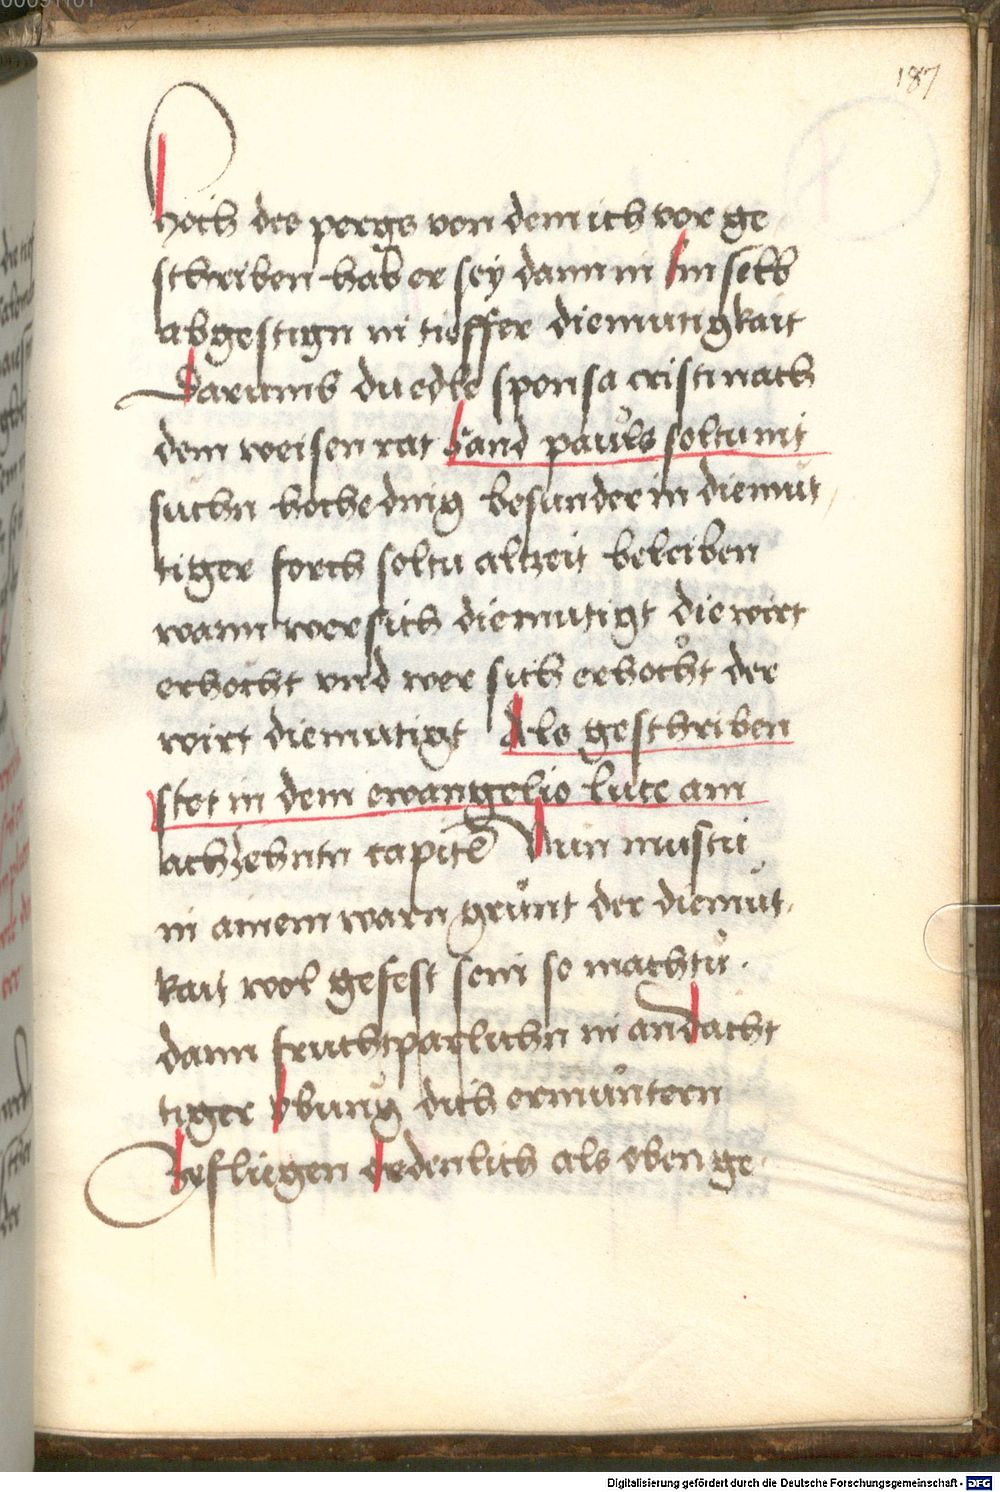 187
hoch des pergs von dem ich vor ge
schriben hab er sey dann in Im selb
abgestign in tieffer diemutigkait
Darumb du edle sponsa cristi nach
dem weisen rat Sand paůls soltu nit
suchn hoche ding besunder in diemut
tiger forch soltu altzeit beleiben
wann wer sich diemutigt die wirt
erhöcht vnd wer sich erhöcht der
wirt diemutigt Als geschriben
stet in dem ewangelio luce am
achzehntn capite Nun mustu
in ainem warn grůnt der diemůt
kait wol gefest sein so machtu
dann fruchtparlichn in andacht
tiger Vbung dich ermůntern
Zeflůgen Ordenlich als oben ge
Digitalisierung gefördert durch die Deutsche Forschungsgemeinschaft - DFG